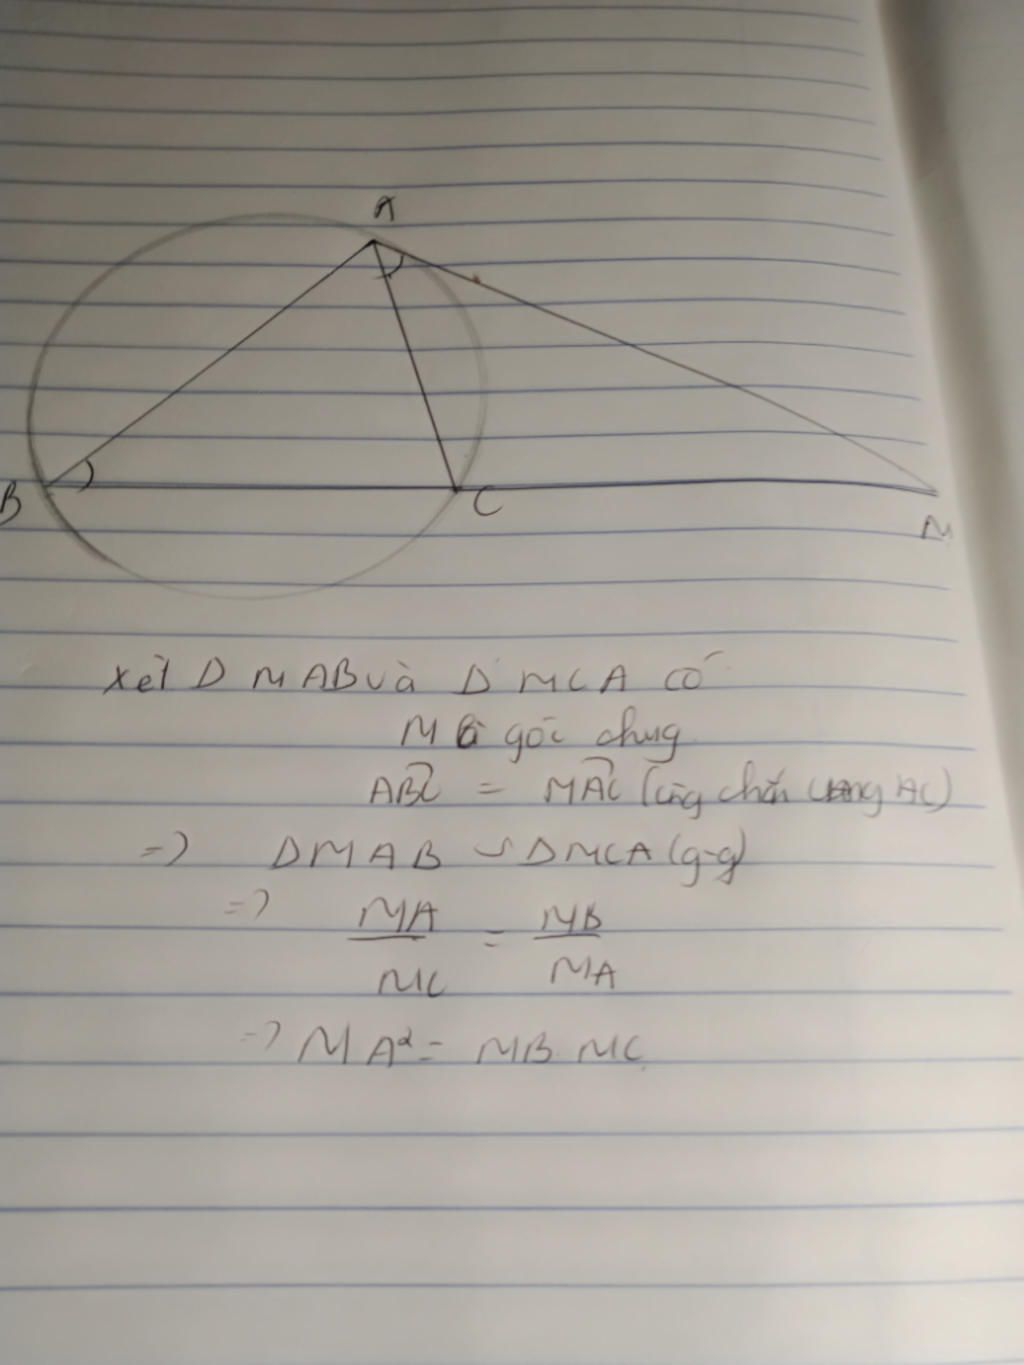 A
B
C
M
Xét Δ MAB và Δ MCA có
M là góc chung
ABC = MAC (cùng chắn cung AC)
=> ΔMAB ∽ ΔMCA (g-g)
=> MA/MC = MB/MA
=> MA² = MB.MC